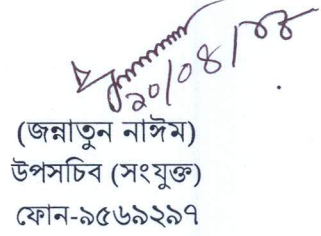 ২০/০৪/১৪
(জন্নাতুন নাঈম)
উপসচিব (সংযুক্ত)
ফোন-৯৫৬৯২৯৭